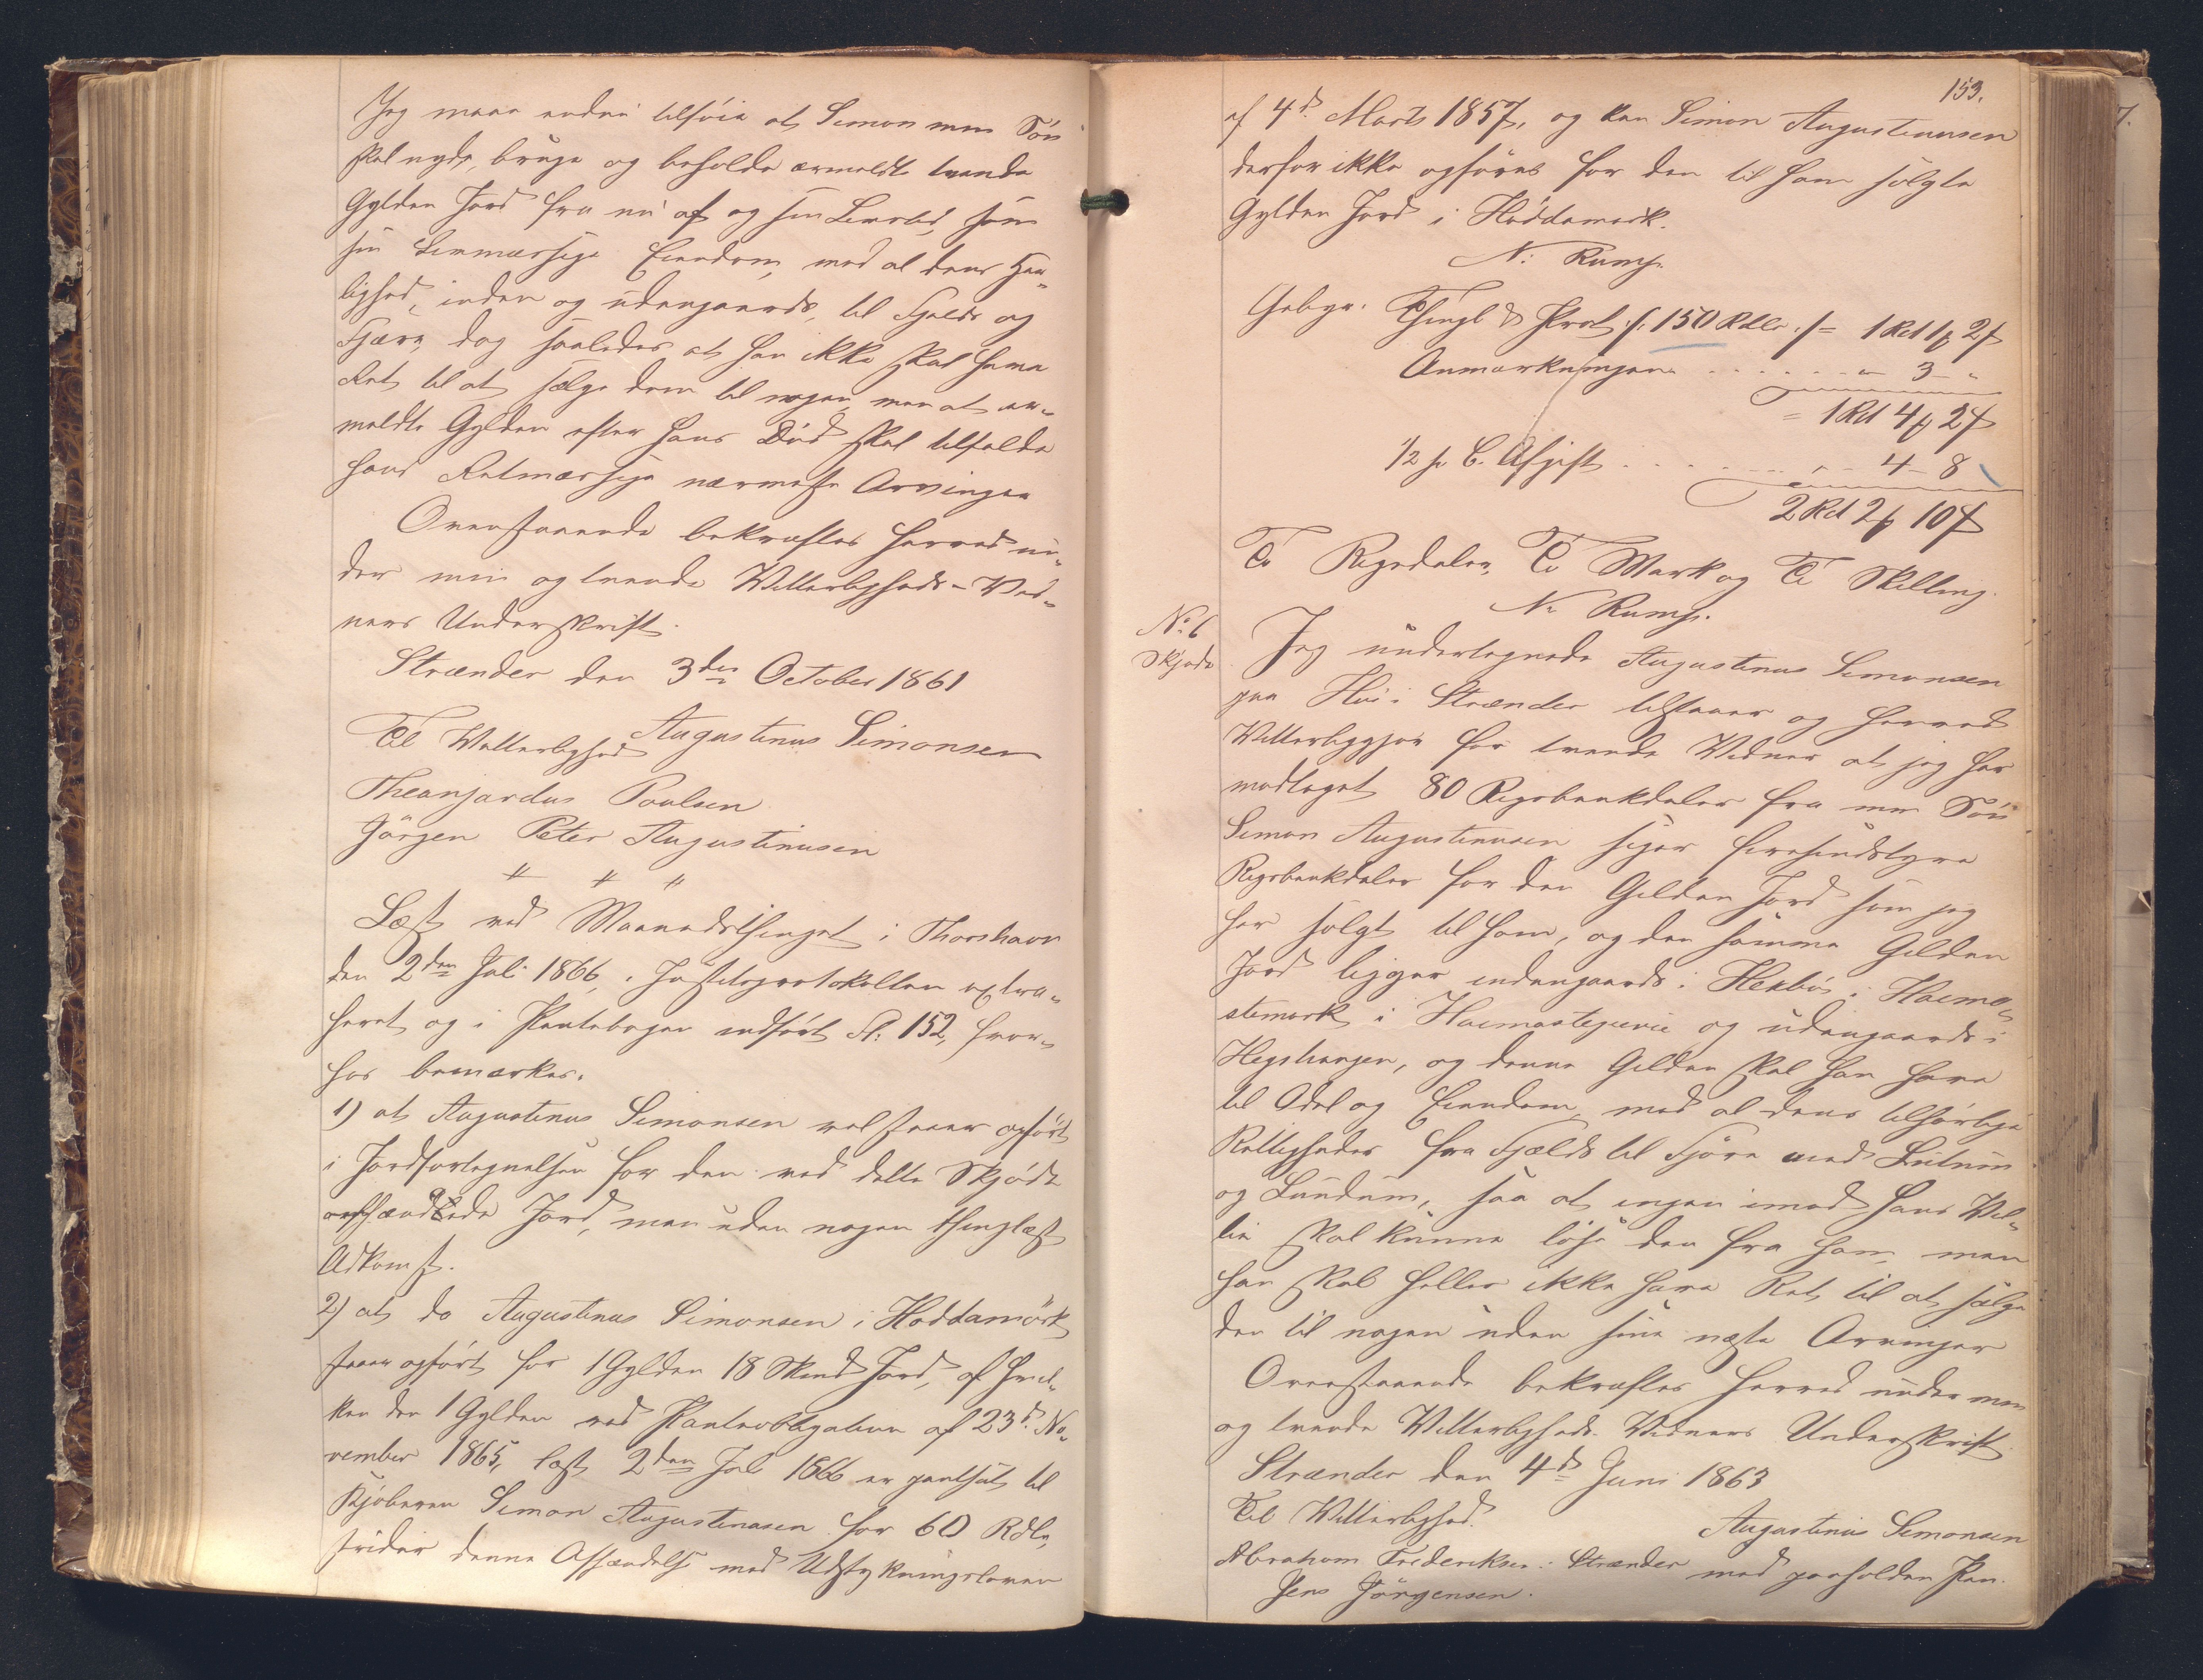 Jeg maa endnu tilføie at Simon min Søn
skal nyde, bruge og beholde ermeldte tvende
Gylden Jord fra nu af og sin Livstid, som
sin Lovmæssige Eiendom, med al dens Her„
lighed, inden og udengaards, til Fjelds og
Fjære, dog saaledes at han ikke skal have
Ret til at sælge dem til nogen, men at er„
meldte Gylden efter hans Død skal tilfalde
hans Retmæssige nærmeste Arvinger
Ovenstaaende bekræftes herved un„
der min og tvende Vitterligheds-Vid„
ners Underskrift.
Strænder den 3die October 1861
Augustinus Simonsen
Til Vitterlighed
Poulsen
Jörgen Peter Augustinusen
〃 〃 〃
Læst ved Maanedsthinget i Thorshavn
den 2den Juli 1866, i Justitsprotokollen extra„
heret og i Pantebogen indført Fl: 152, hvor„
hos bemærkes:
1) at Augustinus Simonsen vel staaer opført
i Jordfortegnelsen for den ved dette Skjøde
afhændede Jord, men uden nogen thinglæst
Adkomst.
2) at do Augustinus Simonsen i Hoddamörk
staaer opført for 1 Gylden 18 Skind Jord, af hvil„
ken den 1 Gylden ved Panteobligation af 23d. No„
vember 1865, læst 2den Juli 1866 er pantsat til
Kjøberen Simon Augustinusen for 60 Rdlr,
strider denne Afhændelse mod Udstykningsloven
153.
af 4d. Marts 1857, og kan Simon Augustinusen
derfor ikke opføres for den til ham solgte
Gylden Jord i Hoddamörk.
N: Rump.
Gebyr. Thingl & Prot. f. 150 Rdlr. /= 1 Rd 1 ꝳ 2 ß
Anmærkningen . . . . . . „ 3 - „
= 1 Rd 4 ꝳ 2 ß
1/2 p. C. Afgift . . . . . . . 4 - 8
2 Rd 2 ꝳ 10 ß
To Rigsdaler, To Mark og Ti Skilling.
N. Rump.
No 6
Skjøde
Jeg undertegnede Augustinus Simonsen
paa Húi i Strænder tilstaaer og herved
Vitterliggjør for tvende Vidner at jeg har
modtaget 80 Rigsbankdaler fra min Søn
Simon Augustinusen siger firesindstyve
Rigsbankdaler for den Gilden Jord som jeg
har solgt til ham, og den samme Gilden
Jord ligger indengaards i i
stemark i og udengaards i
, og denne Gilden skal han have
til Odel og Eiendom, med al dens tilhørlige
Rettigheder fra Fjelds til Fjøre med Lutum
og Lundum, saa at ingen imod hans Vil„
lie skal kunne løse den fra ham, men
han skal heller ikke have Ret til at sælge
den til nogen uden sine næste Arvinger
Ovenstaaende bekræftes herved under min
og tvende Vitterligheds-Vidners Underskrift.
Strænder den 4d Juni 1863
Til Vitterlighed.
Augustinus Simonsen
Abraham Frederiksen i Strænder med paaholden Pen.
Jens Jörgensen.